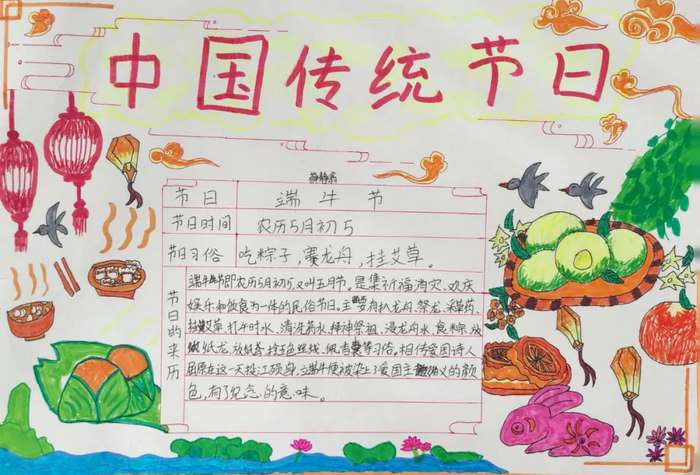 中国传统节日
节日 端午节
节日时间 农历5月初5
节日习俗 吃粽子,赛龙舟,挂艾草。
节日的来历
端午节即农历5月初5,又叫五月节,是集祈福消灾、欢庆
娱乐和饮食为一体的民俗节日。主要有扒龙舟、祭龙、采草药、
挂艾草、打午时水、洗草药水、拜神祭祖、浸龙舟水、食粽、放
纸龙、放纸鸢、拴五色丝线、佩香囊等习俗。相传爱国诗人
屈原在这一天投江殉身,端午便被染上了爱国主义的颜
色,有了纪念的意味。